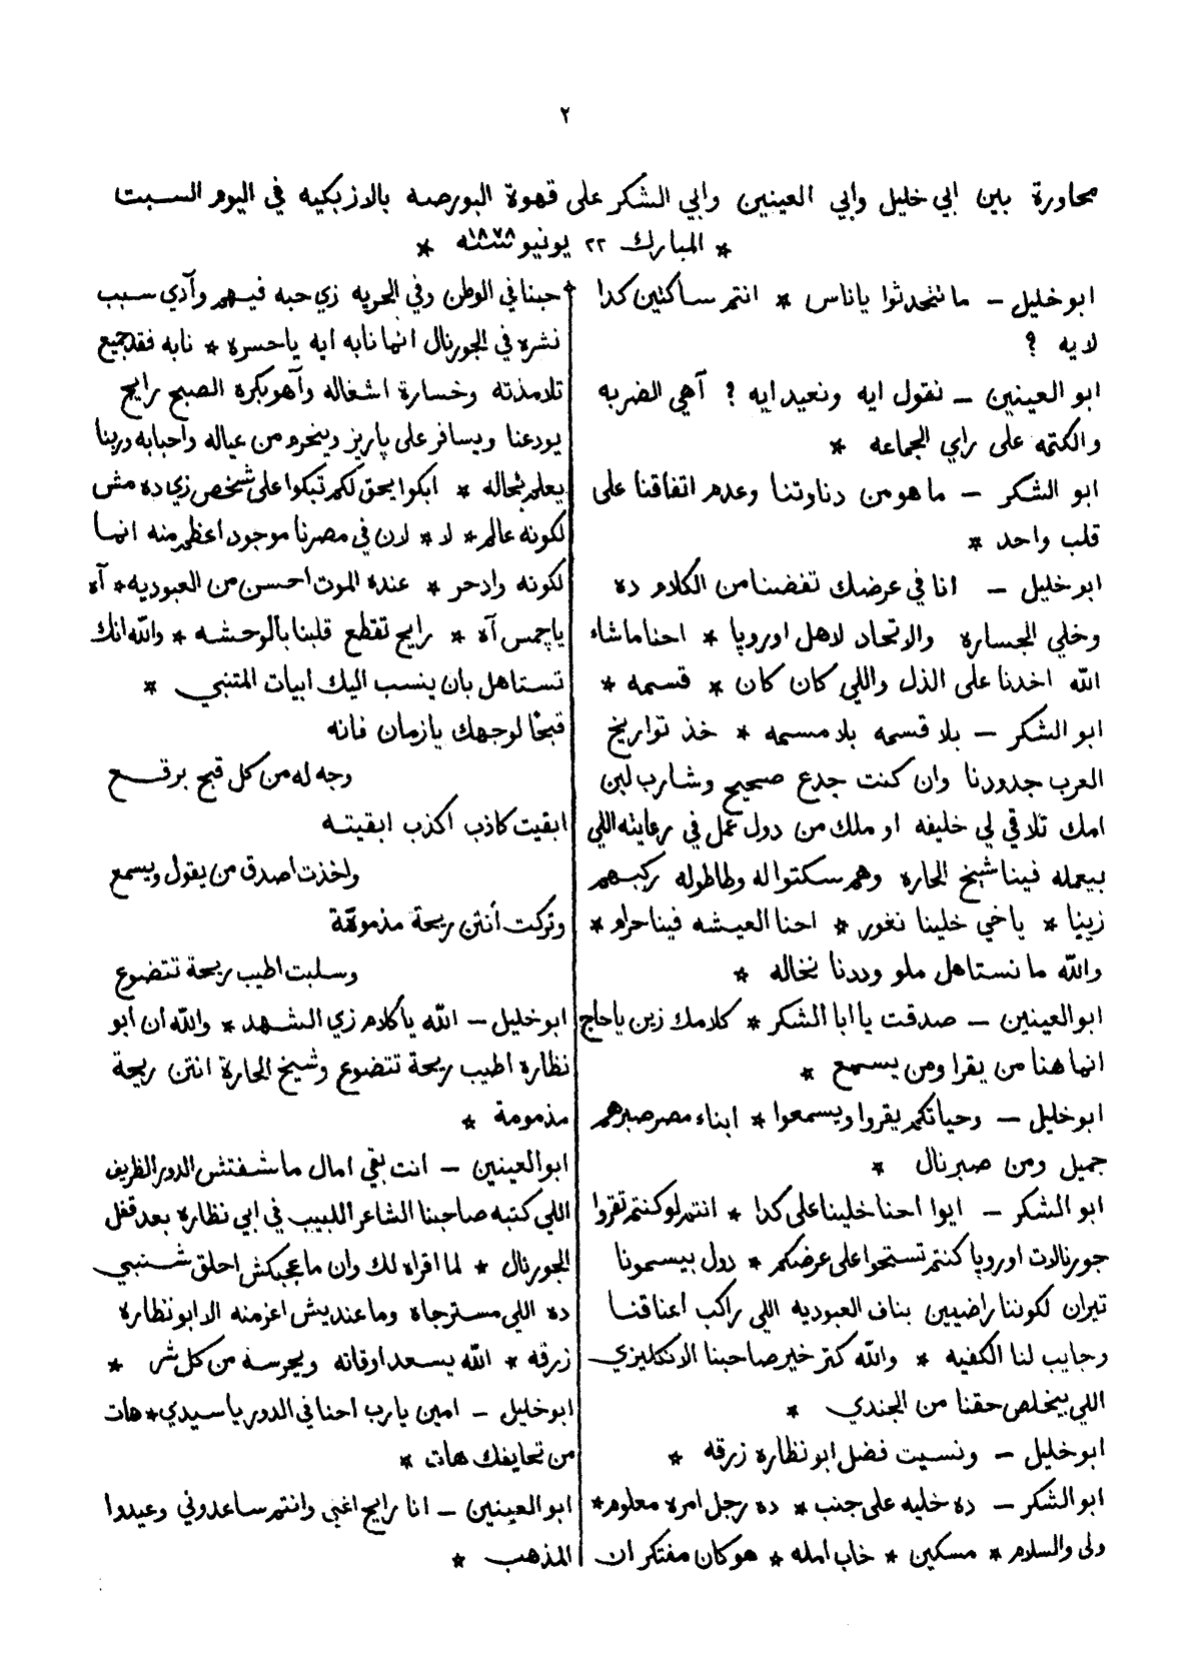 ٢
محاورة بين ابي خليل وابي العينين وابي الشكر على قهوة البورصه بالازبكيه في اليوم السبت
* المبارك ٢٢ يونيو سنة ١٨٧٨ *
ابو خليل – ما تتحدثوا ياناس * انتم ساكتين كدا
لايه ؟
ابو العينين – نقول ايه ونعيد ايه ؟ آهي الضربه
والكتمه على راي الجماعه *
ابو الشكر – ما هو من دناوتنا وعدم اتفاقنا على
قلب واحد *
ابو خليل – انا في عرضك تفضنا من الكلام ده
وخلي الجساره والاتحاد لاهل اوروپا * احنا ماشاء
الله اخدنا على الذل واللي كان كان * قسمه *
ابو الشكر – بلا قسمه بلا مسمه * خذ تواريخ
العرب جدودنا وان كنت جدع صحيح وشارب لبن
امك تلاقي لي خليفه او ملك من دول عمل في رعايته اللي
بيعمله فينا شيخ الحاره وهم سكتوا له وطاطوله ركبهم
زينيا * ياخي خلينا نغور * احنا العيشه فينا حرام *
والله ما نستاهل ملو وددنا نخاله *
ابو العينين – صدقت يا ابا الشكر * كلامك زين ياحاج
انما هنا من يقرا ومن يسمع *
ابو خليل – وحياتكم يقروا ويسمعوا * ابناء مصر صبرهم
جميل ومن صبر نال *
ابو الشكر – ايوا احنا خلينا على كدا * انتم لو كنتم تقروا
جورنالات اوروپا كنتم تستحوا على عرضكم * دول بيسمونا
تيران لكوننا راضيين بناف العبوديه اللي راكب اعناقنا
وجايب لنا الكفيه * والله كتر خير صاحبنا الانكليزي
اللي بيخلص حقنا من الجندي *
ابو خليل – ونسيت فضل ابو نظاره زرقه *
ابو الشكر – ده خليه على جنب * ده رجل امره معلوم *
ولى والسلام * مسكين * خاب امله * هو كان مفتكر ان
حبنا في الوطن وفي الحريه زي حبه فيهم وآدي سبب
نشره في الجورنال انما نابه ايه ياحسره * نابه فقد جميع
تلامذته وخسارة اشغاله وآهو بكره الصبح رايح
يودعنا ويسافر على پاريز وينحرم من عياله واحبابه وربنا
يعلم بحاله * ابكوا بحق لكم تبكوا على شخص زي ده مش
لكونه عالم * لا * لان في مصرنا موجود اعظم منه انما
لكونه واد حر * عنده الموت احسن من العبوديه * آه
يا چمس آه * رايح تقطع قلبنا بالوحشه * والله انك
تستاهل بان ينسب اليك ابيات المتنبي *
قبحًا لوجهك يا زمان فانه
وجه له من كل قبح برقع
ابقيت كاذب اكذب ابقيته
واخذت اصدق من يقول ويسمع
وتركت أنتن ريحة مذمومة
وسلبت اطيب ريحة تتضوع
ابو خليل – الله يا كلام زي الشهد * والله ان ابو
نظاره اطيب ريحة تتضوع وشيخ الحارة انتن ريحة
مذمومة *
ابو العينين – انت بقي امال ما شفتش الدور الظريف
اللي كتبه صاحبنا الشاعر اللبيب في ابي نظاره بعد قفل
الجورنال * لما اقراه لك وان ما عجبكش احلق شنبي
ده اللي مسترجاه وما عنديش اعز منه الا ابو نظاره
زرقه * الله يسعد اوقاته ويحرسه من كل شر *
ابو خليل – امين يارب احنا في الدور يا سيدي * هات
من تحايفك هات *
ابو العينين – انا رايح اغني وانتم ساعدوني وعيدوا
المذهب *